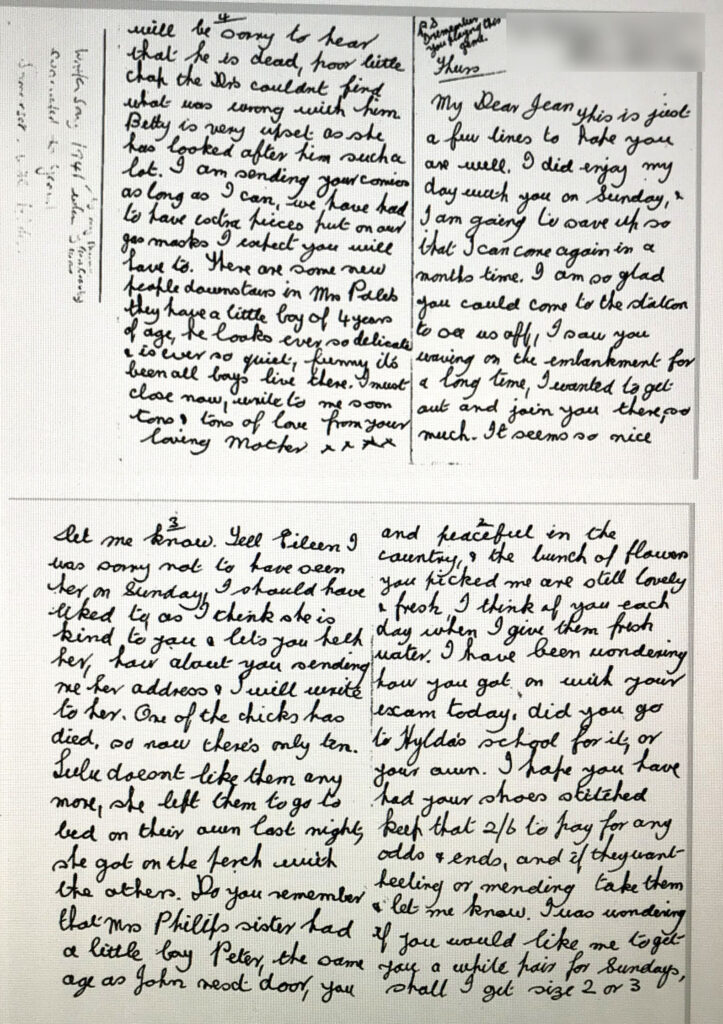 Thurs
My Dear Jean, this is just
a few lines to hope you
are well. I did enjoy my
day with you on Sunday, &
I am going to save up so
that I can come again in a
months time. I am so glad
you could come to the station
to see us off, I saw you
waving on the embankment for
a long time, I wanted to get
out and join you there, so
much. It seems so nice
2
and peaceful in the
country, & the bunch of flowers
you picked me are still lovely
& fresh, I think of you each
day when I give them fresh
water. I have been wondering
how you got on with your
exam today, did you go
to Hylda's school for it, or
your own. I hope you have
had your shoes stitched
keep that 2/6 to pay for any
odds & ends, and if they want
heeling or mending take them
& let me know. I was wondering
if you would like me to get
you a white pair for Sundays,
shall I get size 2 or 3
3
let me know. Tell Eileen I
was sorry not to have seen
her on Sunday, I should have
liked to as I think she is
kind to you & lets you help
her, how about you sending
me her address & I will write
to her. One of the chicks has
died, so now there's only ten.
Lulu doesnt like them any
more, she left them to go to
bed on their own last night,
she got on the perch with
the others. Do you remember
that Mrs Philips sister had
a little boy Peter, the same
age as John next door, you
4
will be sorry to hear
that he is dead, poor little
chap the Drs couldnt find
what was wrong with him
Betty is very upset as she
has looked after him such a
lot. I am sending your comics
as long as I can, we have had
to have extra pieces put on our
gas masks I expect you will
have to. There are some new
people downstairs in Mrs
they have a little boy of 4 years
of age, he looks ever so delicate
& is ever so quiet, funny its
been all boys live there. I must
close now, write to me soon
tons & tons of love from your
loving Mother x x x x
PS
I remember
you playing this
1941
evacuated to